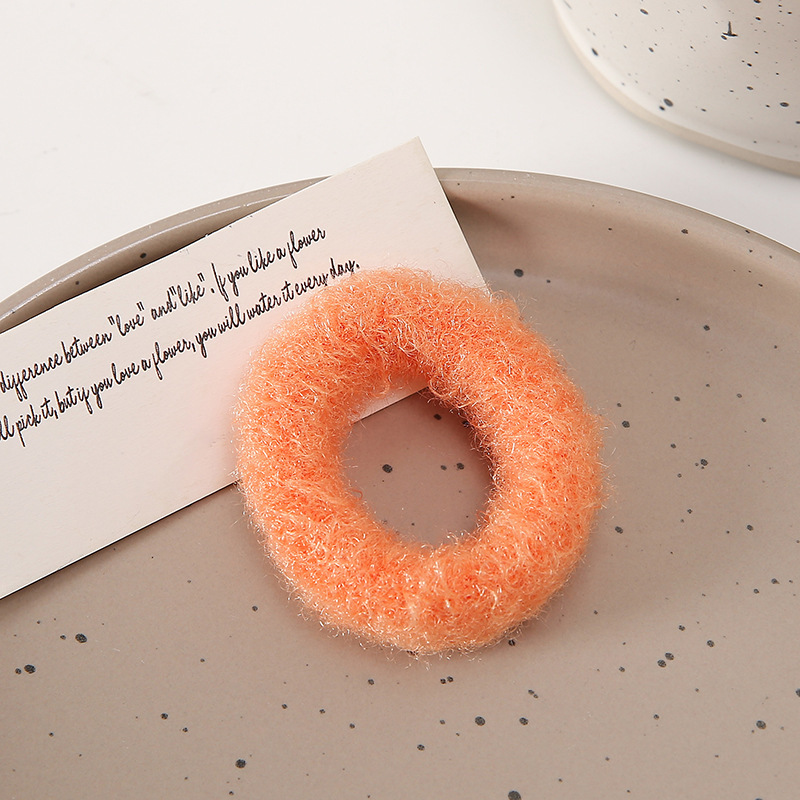 difference between "love" and "like". If you like a flower
ll pick it, but if you love a flower, you will water it every day.